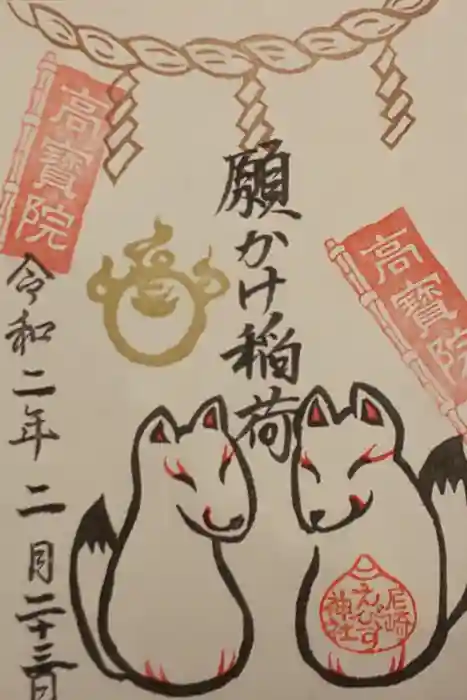 高寳院
願かけ稲荷
高寳院
令和二年二月二十三日
尼崎
えびす
神社